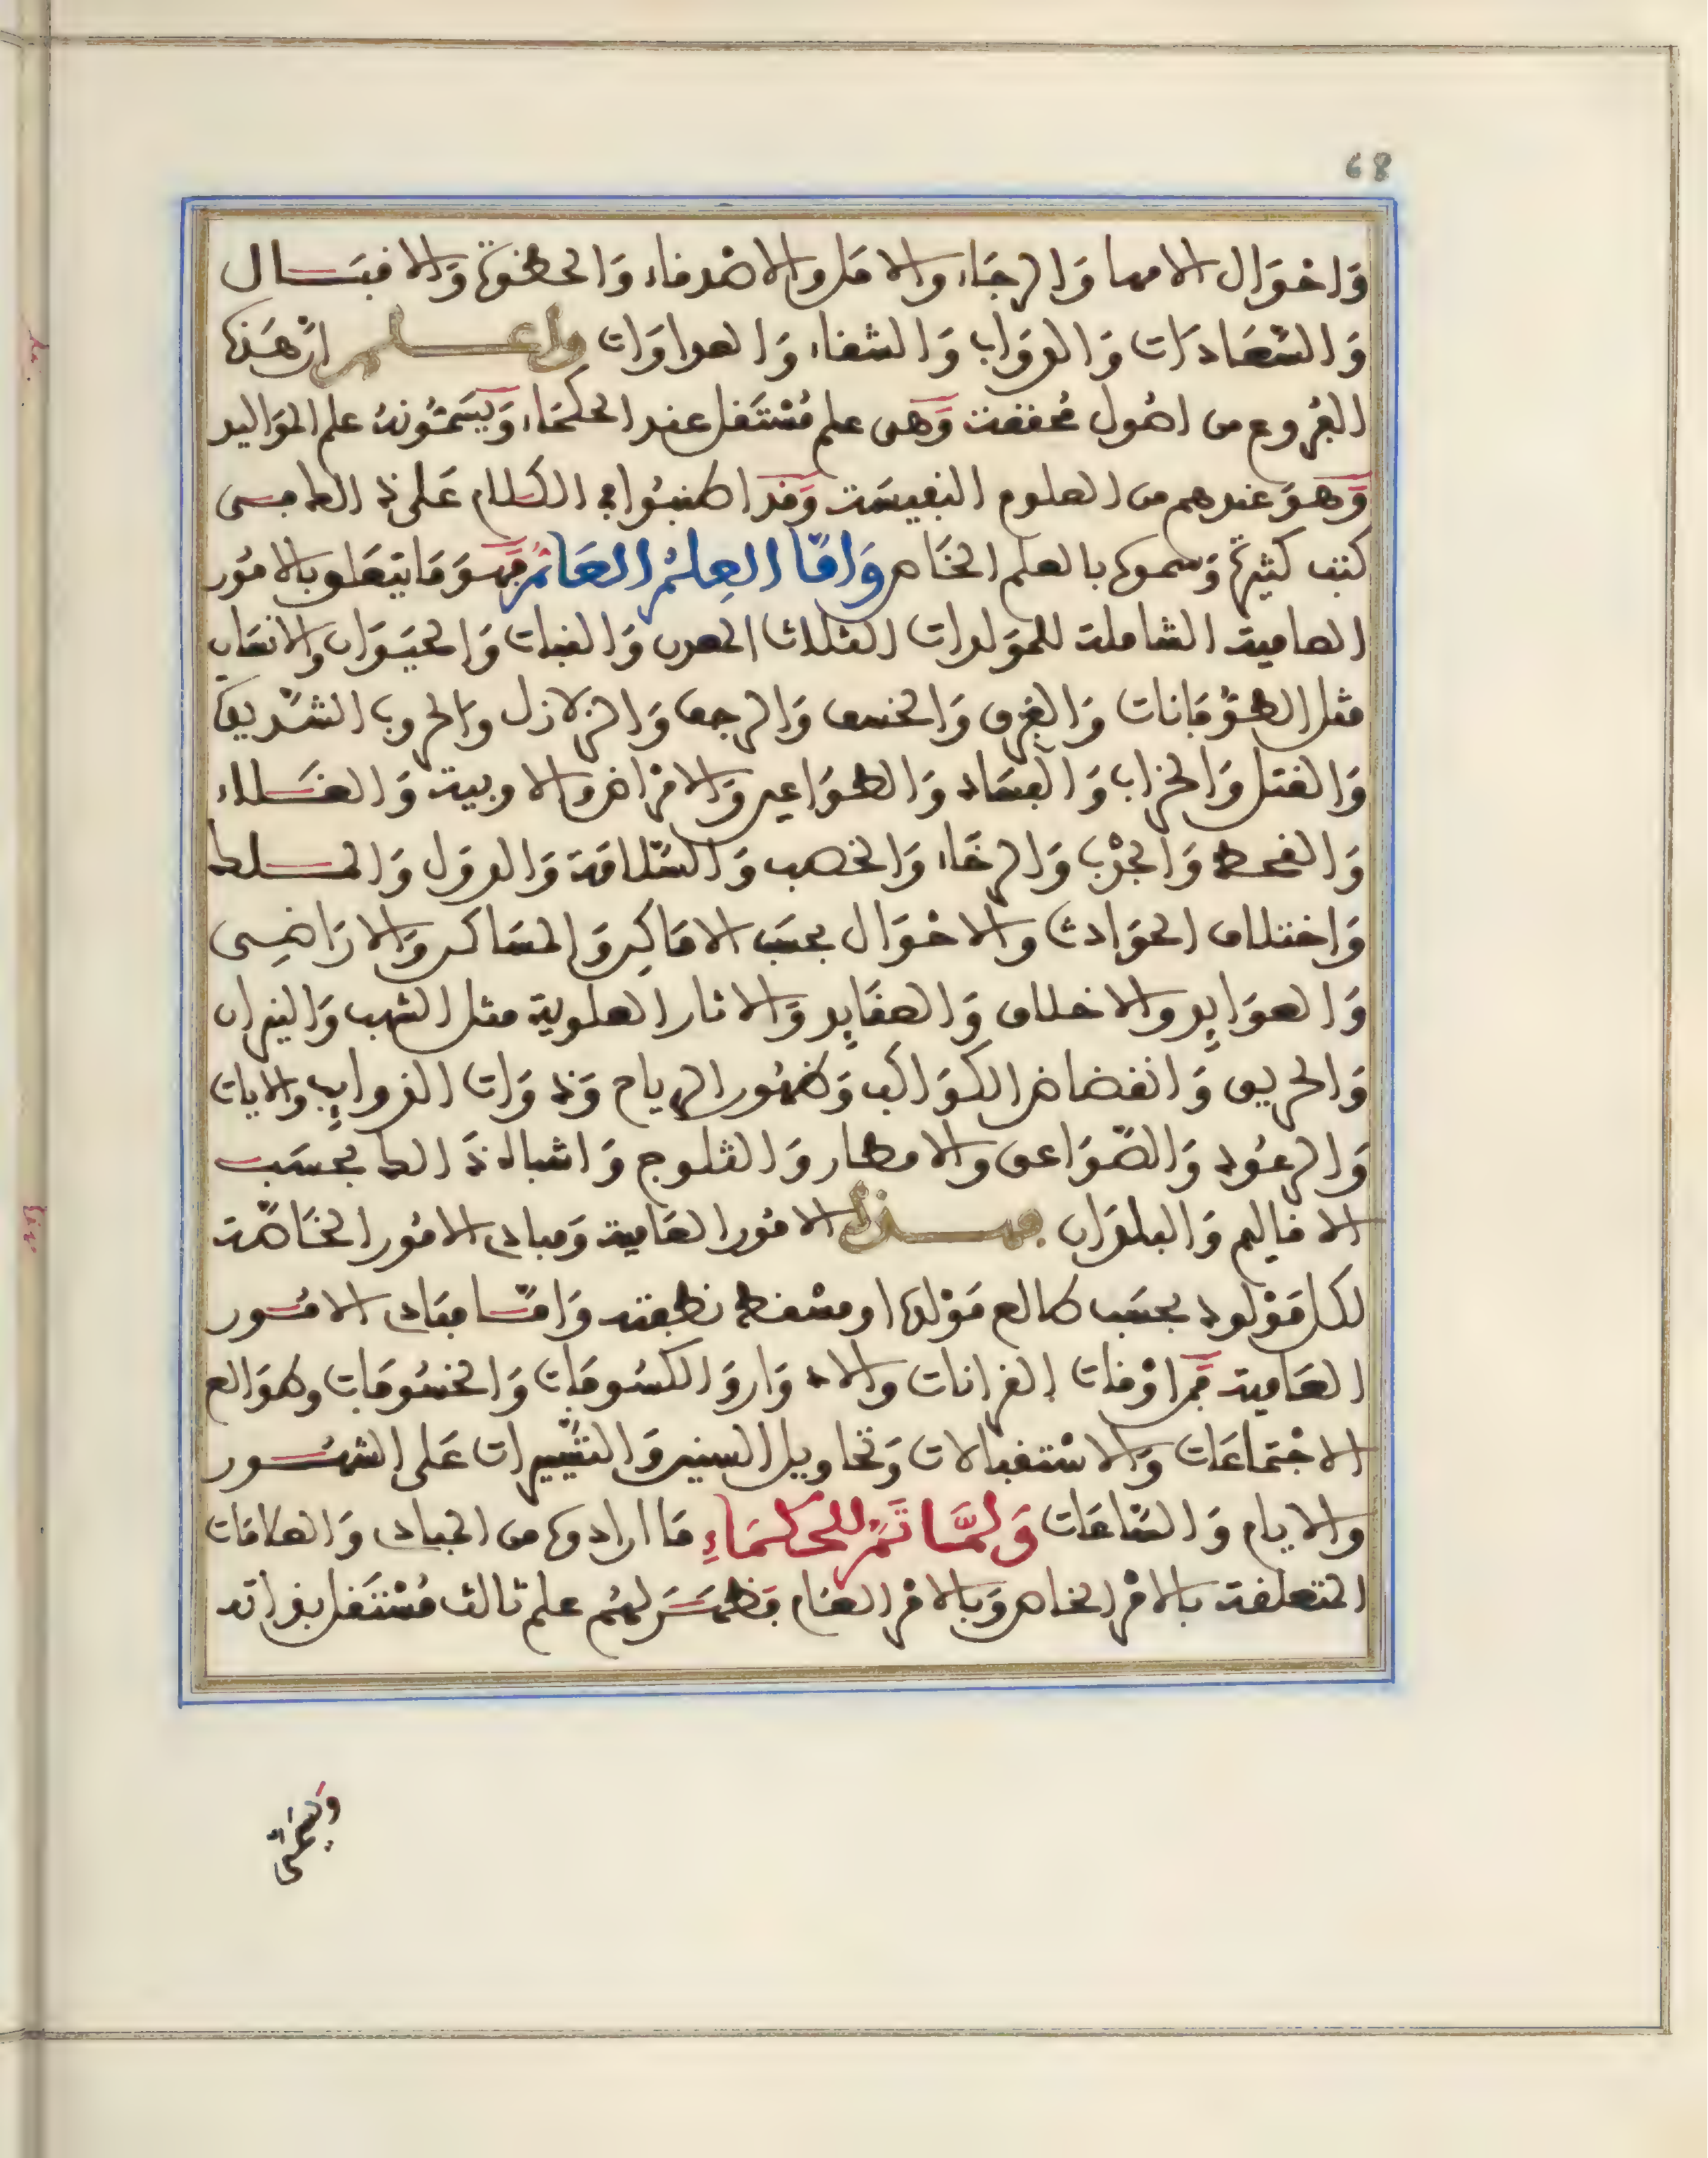 68
وَاحْوَال الامهات وَالرجَاء والامل والاصْدقاء وَالحظوة وَالاقبَال
وَالسَّعَادَات وَالدوَاب وَالشقاء وَالعداوَات واعلم ان هَذه
الفرُوع من اصُول محققة وَهى علم مُسْتَقل عند الحكمَاء وَيسَمُّونهُ علم المَواليد
وَهوَ عندهم من العلوم النفيسَة وَقد اطنبُوا في الكلام عَلى ذالك فى
كتب كثيرة وَسموه بالعلم الخَاص وَامَّا العِلمُ العَامُّ فهوَ مَا يتعَلق بالامُور
العامية الشاملة للموَلدات الثلاث المعدن وَالنبات وَالحيَوَان والانسَان
مثل الطوفَانات وَالغرق وَالخسف وَالرجف وَالزلازل والحروب الشَّديدة
وَالقتل وَالخراب وَالفسَاد وَالطوَاعين وَالامْراض والاوبية وَالغَلاء
وَالقحط وَالجدْب وَالرخَاء وَالخصب وَالسَّلامَة وَالدوَل وَالملك
وَاختلاف الحوَادث والاحْوَال بحسَب الامَاكِن وَالمسَاكن وَالارَاضِى
وَالعوَايد والاخلاق وَالعقَايد وَالاثار العلوية مثل الشهب وَالنيران
وَالحريق وَانقضاض الكوَاكب وَظهُور الرياح وَذوَات الذوايب والايات
وَالرعُود وَالصَّوَاعق والامطار وَالثلوج وَاشباه ذَالك بحسَب
الاقاليم وَالبلدَان فهذه الامُور العَامية وَمبادى الامُور الخَاصَّة
لكل مَوْلود بحسَب طالع مَوْلده او مسْقط نطفته وَامَّا مبَادى الامُور
العَامية فمن اوْقات القرانات والادوَار وَالكسُوفَات وَالخسُوفَات وطوَالع
الاجْتمَاعَات وَالاسْتقبالات وَتحاويل السنين وَالتسْييرات عَلى الشهُور
والايام وَالسَّاعَات وَلمَّا تَمَّ للحكمَاءِ مَا ارادوه من المبادى وَالعلامَات
المتعلقة بالامْر الخاص وَبالامْر العَام فظهَرَ لهُم علم ثالث مُسْتَقل بذاته
وَيسَمَّى